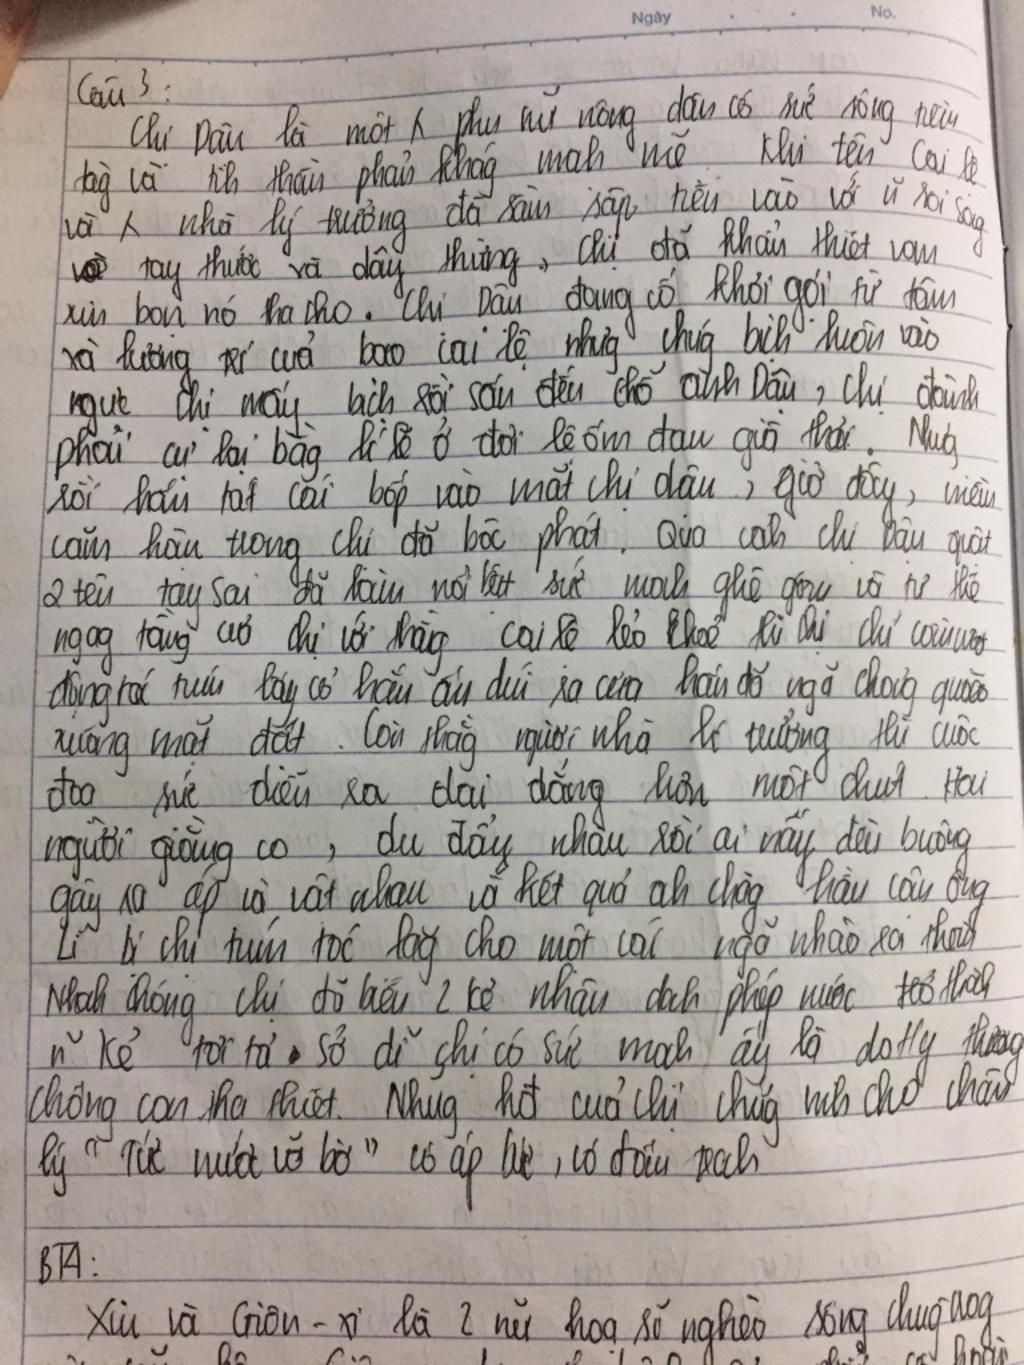 Ngày No.
Câu 3:
Chị Dậu là một λ phụ nữ nông dân có sức sống tiềm
tàg và tih thần phản khág mạh mẽ. Khi tên Cai lệ
và λ nhà lý trưởng đã sầm sập tiến vào với
tay thước và dây thừng, chị đã khẩn thiết van
xin bọn nó tha cho. Chị Dậu đang cố khơi gợi từ tâm
và lương tri cuả bao cai lệ nhưg chúg bịch luôn vào
ngực chị mấy bịch rồi sấn đến chỗ aình Dậu, chị đành
phải cự lại bằg lí lẽ ở đời lệ ốm đau già thải. Nhưg
rồi hắn tát cái bốp vào mặt chị dậu, giờ đây, niềm
căm hờn trong chị đã bộc phát. Qua cảh chị Dậu quật
2 tên tay sai đã làm nổi bật sức mạh ghê gớm và tư thế
ngag tàng cuả chị với thằg cai lệ lẻo khoẻ thì chị chỉ
động tác túm lấy cổ hắn ấn dúi ra cửa hắn đã ngã chỏng quèo
xuống mặt đất. Còn thằg người nhà lí trưởng thì cuộc
đọa sức diễn ra dai dẳng hơn một chút. Hai
người giằng co, du đẩy nhau rồi ai nấy đều buông
gậy ra áp và vật nhau và kết quả ah chàg hầu cận ôg
Lí bị chị túm tóc lẳg cho một cái ngã nhào ra thềm
Nhah chóng chị đã biến 2 kẻ nhân dah phép nước thàh
n~ kẻ tơi tả. Sở dĩ chị có sức mạh ấy là do tìy thương
chồng con tha thiết. Nhữg hđ cuả chị chứg mih cho chân
lý "Tức nước vỡ bờ" có áp lực, có đấu trah
BT4:
Xiu và Giôn-xi là 2 nữ hoạ sĩ nghèo sống chug